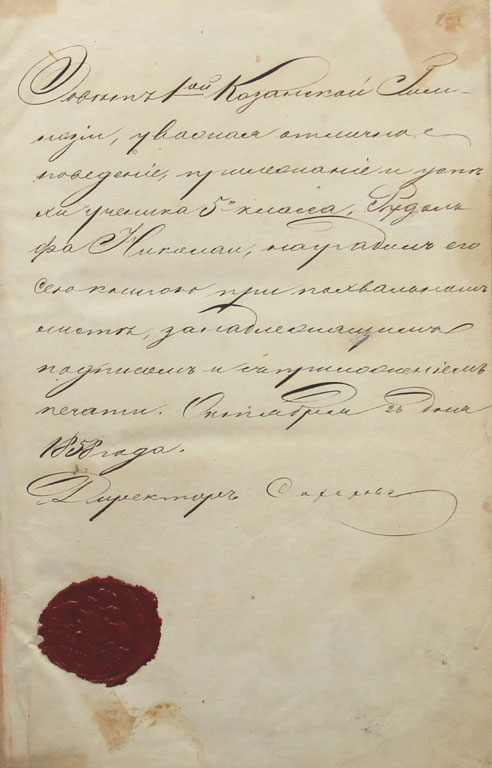 Совѣтъ 1ой Казанской Гим-
назіи, уважая отличное
поведеніе, прилежаніе и успѣ
хи ученика 5го класса, Рудоль
фа Николаи, наградилъ его
сею книгою при похвальномъ
листѣ, за надлежащимъ
подписомъ и съ приложеніемъ
печати. Октября 26 дня
1858 года.
Директоръ